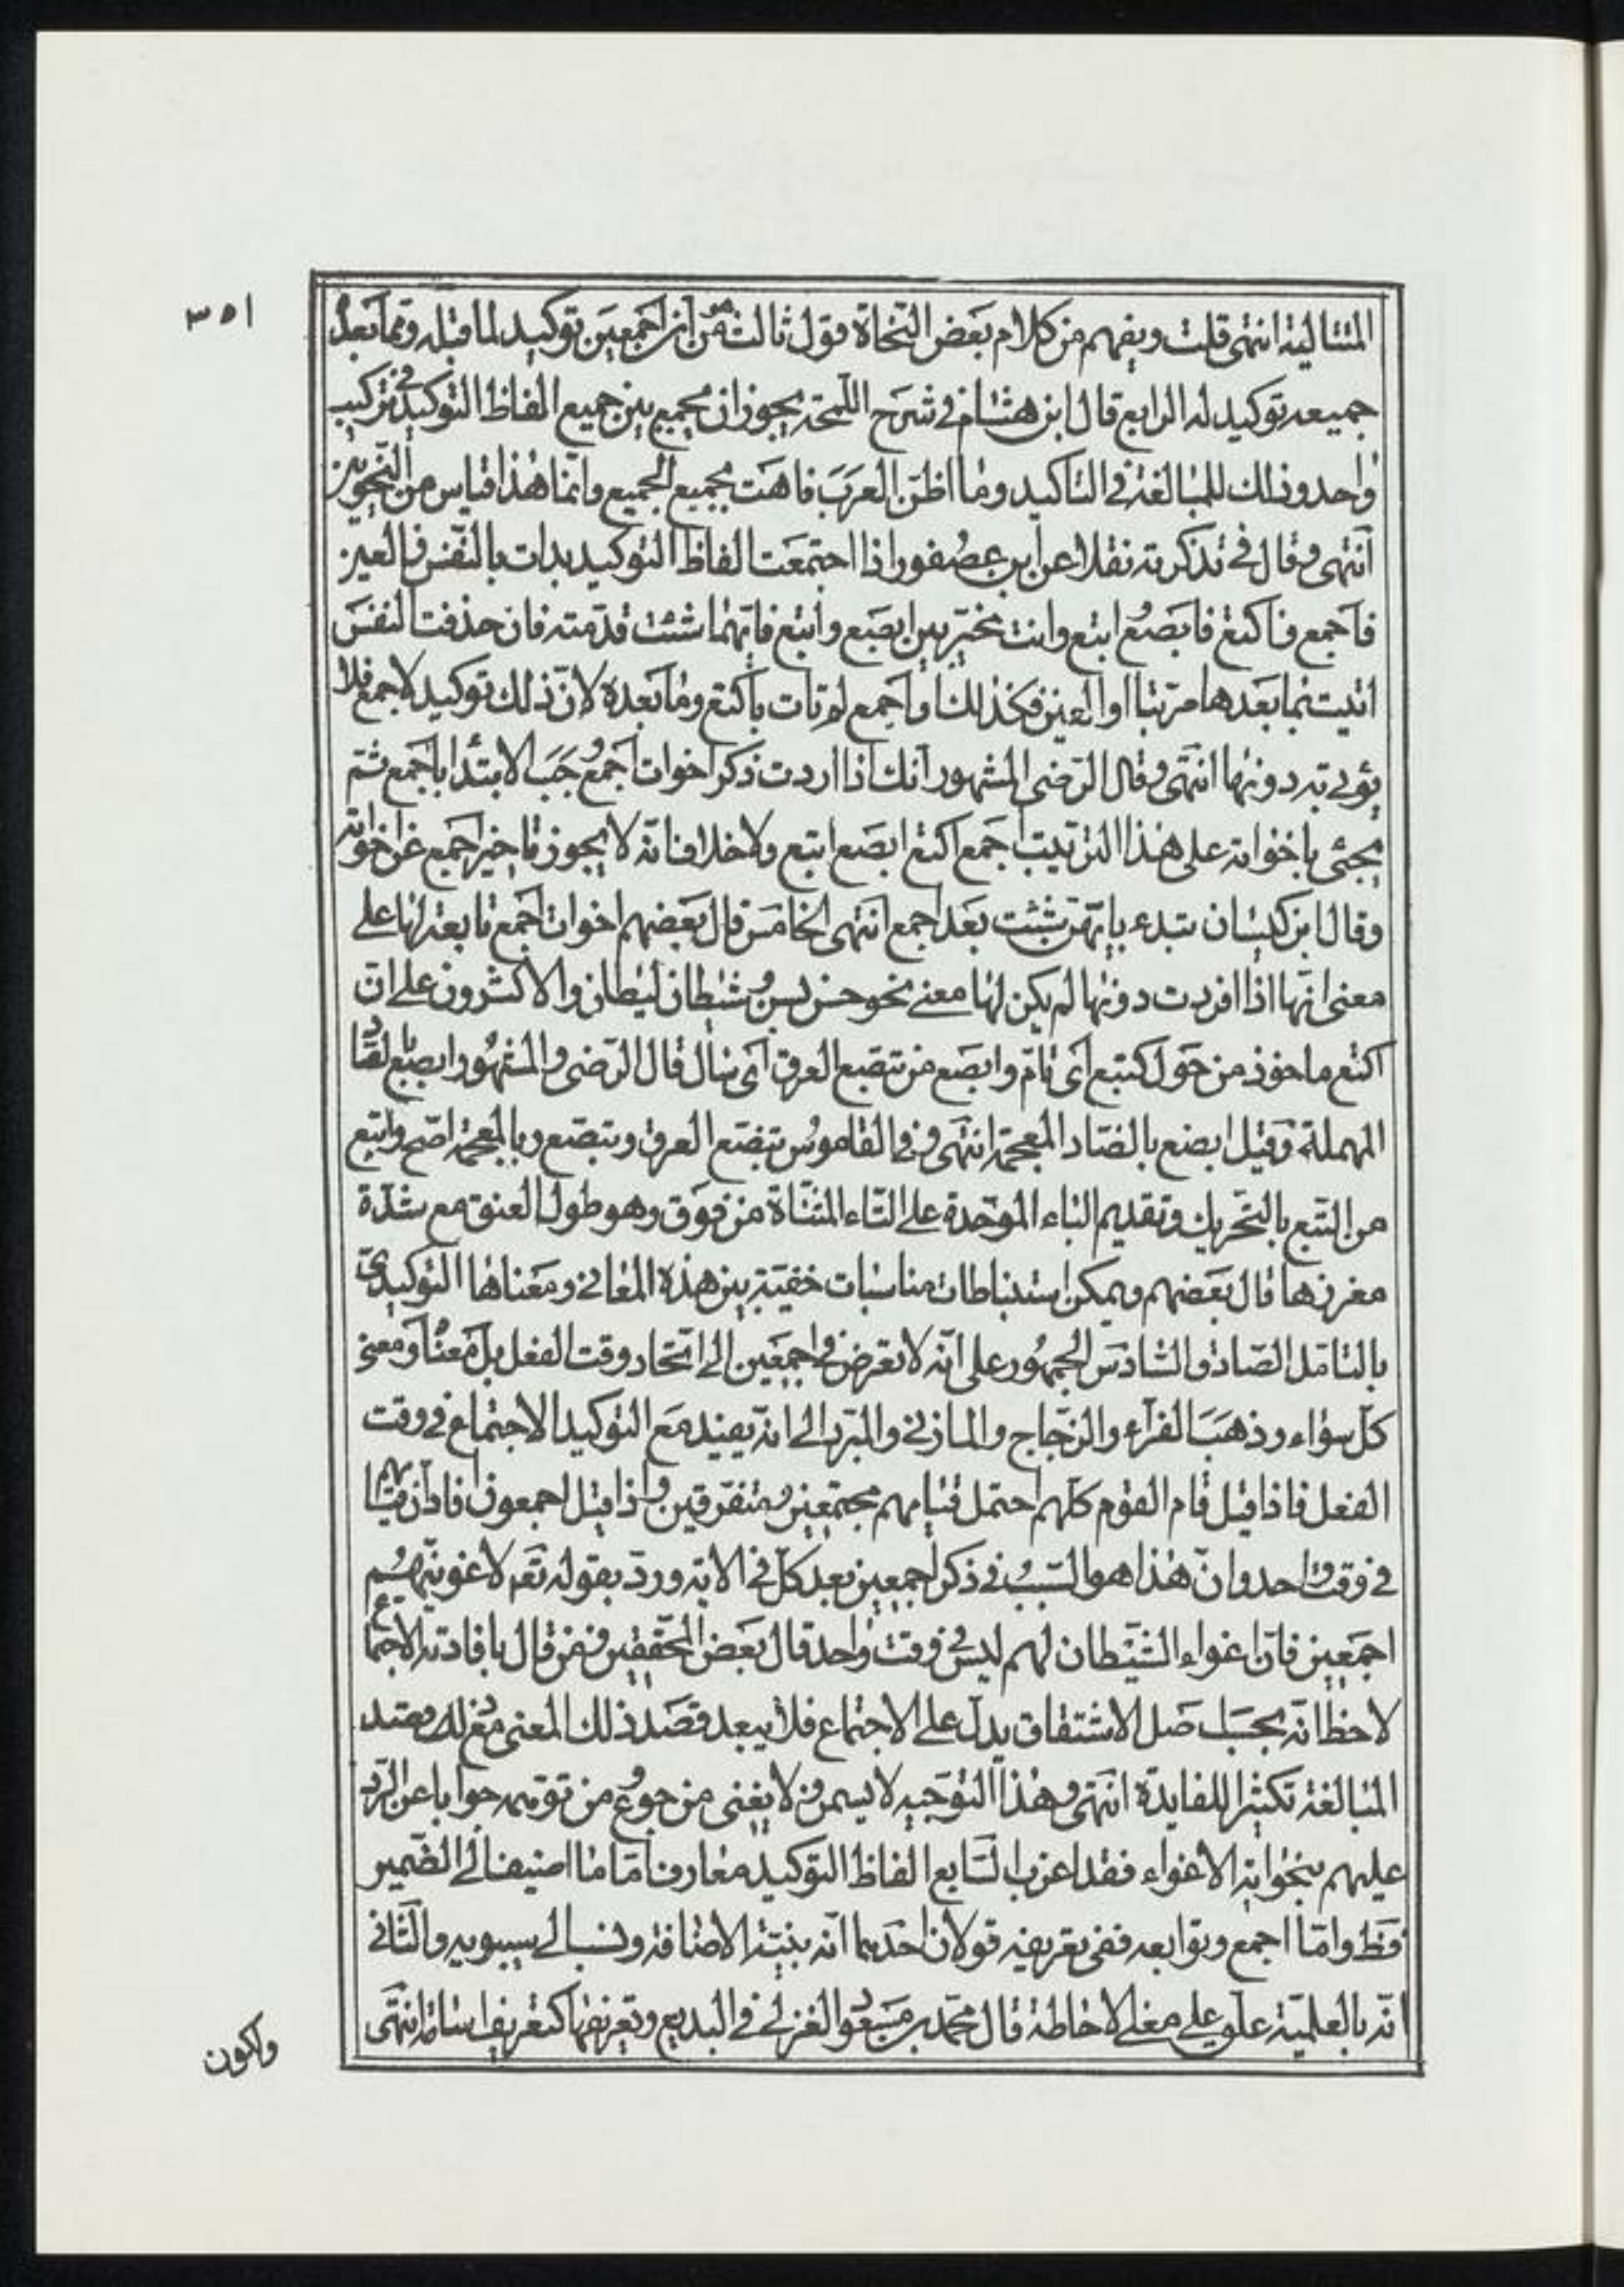 ٣٥١
المتتالية انتهى قلت ويفهم من كلام بعض النحاة قول ثالث من ان اجمعين توكيد لما قبله وما بعد
جميعه توكيد له الرابع قال ابن هشام في شرح اللمحة يجوز ان يجمع بين جميع الفاظ التوكيد في تركيب
واحد وذلك للمبالغة في التاكيد وما اظن العرب فاهت بجميع الجميع وانما هذا قياس من النحويين
انتهى وقال في تذكرته نقلا عن ابن عصفور اذا اجتمعت الفاظ التوكيد بدات بالنفس فالعين
فاجمع فاكتع فابصع ابتع وانت مخير بين ابصع وابتع فايهما شئت قدمته فان حذفت النفس
اتيت بما بعدها مرتبا او العين فكذلك او اجمع لم تات باكتع وما بعده لان ذلك توكيد لاجمع فلا
يؤتى به دونها انتهى وقال الرضى المشهور انك اذا اردت ذكر اخوات اجمع وجب الابتدا باجمع ثم
يجئى باخواته على هذا الترتيب اجمع اكتع ابصع ابتع ولا خلاف انه لا يجوز تاخير اجمع عن اخواته
وقال ابن كيسان تبدء بايتهن شئت بعد اجمع انتهى الخامس قال بعضهم اخوات اجمع تابعة لها على
معنى انها اذا افردت دونها لم يكن لها معنى نحو حسن بسن وشيطان ليطان والاكثرون على ان
اكتع ماخوذ من حول كتيع اى تام وابصع من تبصع العرق اى سال قال الرضى والمشهور ابصع بالصاد
المهملة وقيل ابضع بالضاد المعجمة انتهى وفى القاموس تبضع العرق وتبصع وبالمعجمة اصح وابتع
من البتع بالتحريك وتقديم الباء الموحدة على التاء المثناة من فوق وهو طول العنق مع شدة
مغرزها قال بعضهم ويمكن استنباطات مناسبات خفية بين هذه المعانى ومعناها التوكيدى
بالتامل الصادق السادس الجمهور على انه لا تعرض فى اجمعين الى اتحاد وقت الفعل بل معناه ومعنى
كل سواء وذهب الفراء والزجاج والمازنى والمبرد الى انه يفيد مع التوكيد الاجتماع فى وقت
الفعل فاذا قيل قام القوم كلهم احتمل قيامهم مجتمعين ومتفرقين واذا قيل اجمعون افاد ان قيامهم
فى وقت واحد وان هذا هو السبب فى ذكر اجمعين بعد كل فى الاية ورد بقوله تعم لاغوينهم
اجمعين فان اغواء الشيطان لهم ليس فى وقت واحد قال بعض المحققين فمن قال بافادته الاجتماع
لاحظ انه بحسب اصل الاشتقاق يدل على الاجتماع فلا يبعد قصد ذلك المعنى مع قصد
المبالغة تكثيرا للفايدة انتهى وهذا التوجيه لا يسمن ولا يغنى من جوع من توهمه جوابا عن الرد
عليهم بنحو اية الاغواء فقد اعزب السابع الفاظ التوكيد معارف اما ما اضيف الى الضمير
فظ واما اجمع وتوابعه ففى تعريفه قولان احدهما انه بنية الاضافة ونسب الى سيبويه والثانى
انه بالعلمية علق على معنى الاحاطة قال محمد بن مسعود الغزنى فى البديع وتعريفها كتعريف اسامة انتهى
واكون